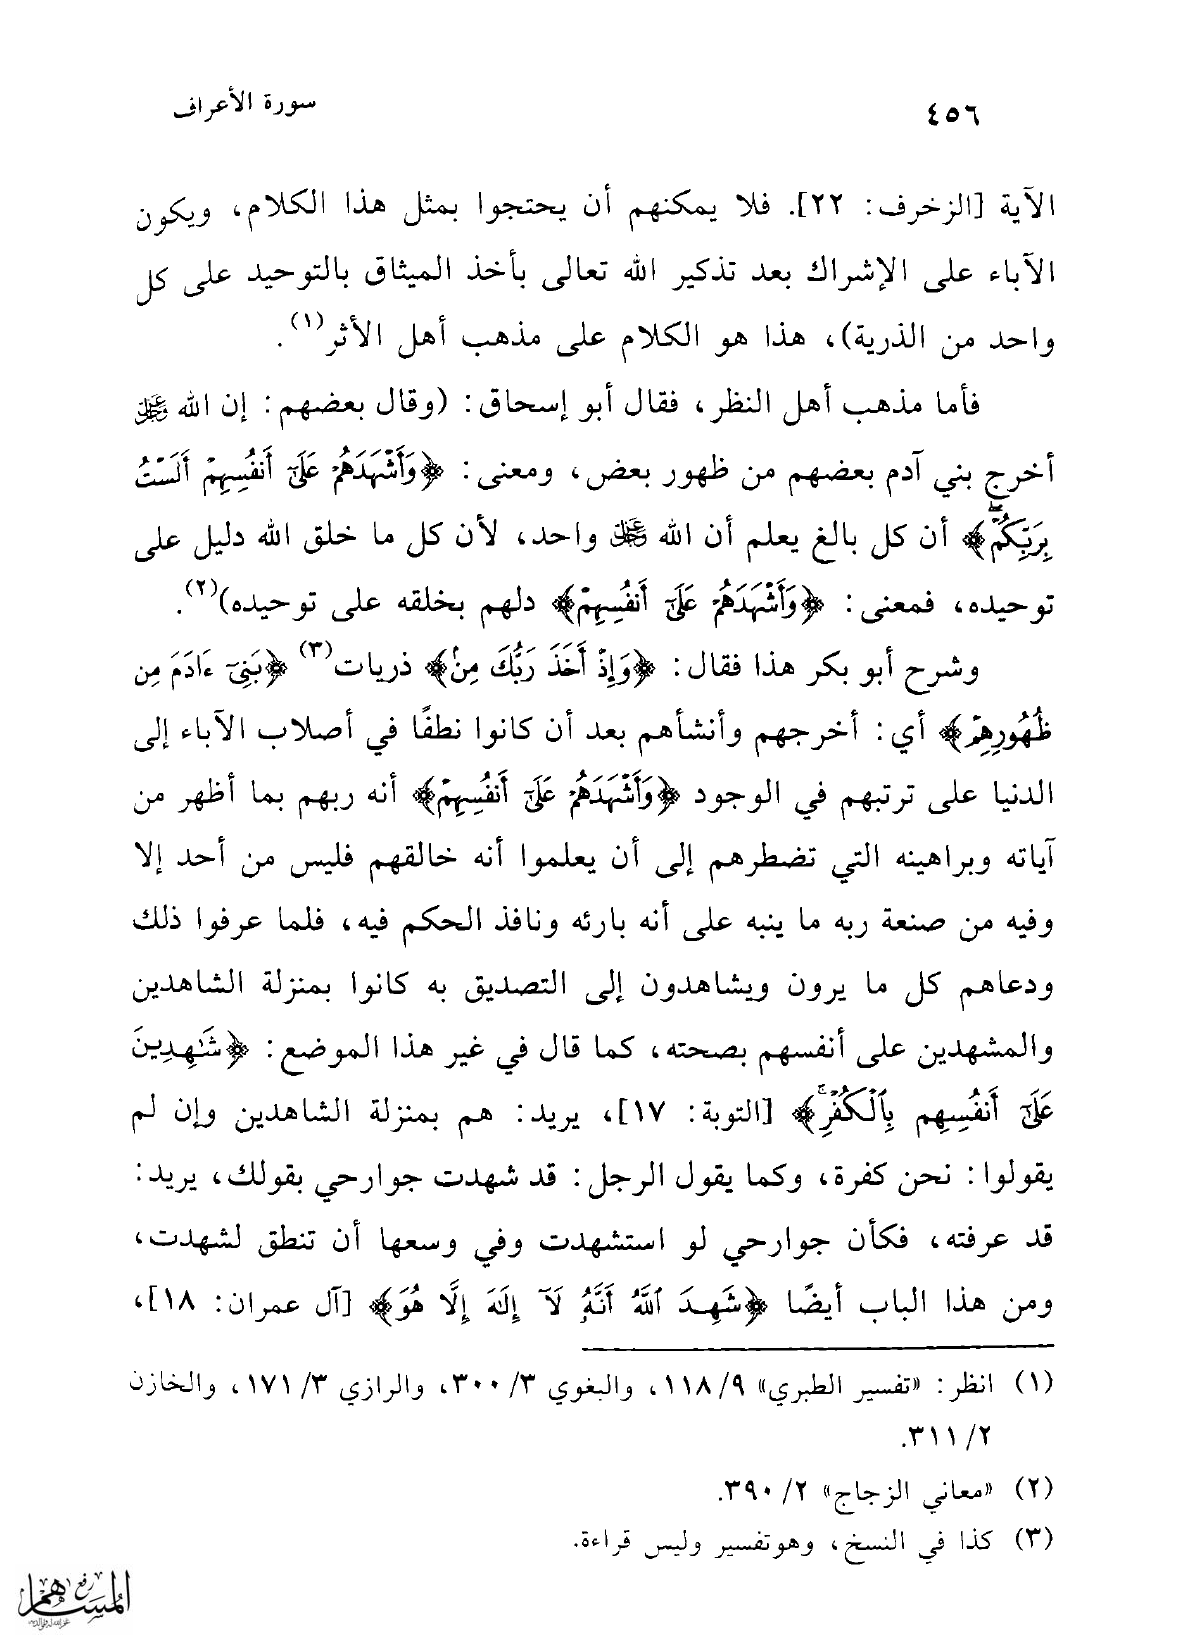 ٤٥٦
سورة الأعراف
الآية [الزخرف: ٢٢]. فلا يمكنهم أن يحتجوا بمثل هذا الكلام، ويكون
الآباء على الإشراك بعد تذكير الله تعالى بأخذ الميثاق بالتوحيد على كل
واحد من الذرية)، هذا هو الكلام على مذهب أهل الأثر(١).
فأما مذهب أهل النظر، فقال أبو إسحاق: (وقال بعضهم: إن الله عز وجل
أخرج بني آدم بعضهم من ظهور بعض، ومعنى: ﴿وَأَشْهَدَهُمْ عَلَىٰٓ أَنفُسِهِمْ أَلَسْتُ
بِرَبِّكُمْۖ﴾ أن كل بالغ يعلم أن الله عز وجل واحد، لأن كل ما خلق الله دليل على
توحيده، فمعنى: ﴿وَأَشْهَدَهُمْ عَلَىٰٓ أَنفُسِهِمْ﴾ دلهم بخلقه على توحيده)(٢).
وشرح أبو بكر هذا فقال: ﴿وَإِذْ أَخَذَ رَبُّكَ مِنۢ﴾ ذريات(٣) ﴿بَنِىٓ ءَادَمَ مِن
ظُهُورِهِمْ﴾ أي: أخرجهم وأنشأهم بعد أن كانوا نطفًا في أصلاب الآباء إلى
الدنيا على ترتبهم في الوجود ﴿وَأَشْهَدَهُمْ عَلَىٰٓ أَنفُسِهِمْ﴾ أنه ربهم بما أظهر من
آياته وبراهينه التي تضطرهم إلى أن يعلموا أنه خالقهم فليس من أحد إلا
وفيه من صنعة ربه ما ينبه على أنه بارئه ونافذ الحكم فيه، فلما عرفوا ذلك
ودعاهم كل ما يرون ويشاهدون إلى التصديق به كانوا بمنزلة الشاهدين
والمشهدين على أنفسهم بصحته، كما قال في غير هذا الموضع: ﴿شَٰهِدِينَ
عَلَىٰٓ أَنفُسِهِم بِٱلْكُفْرِۚ﴾ [التوبة: ١٧]، يريد: هم بمنزلة الشاهدين وإن لم
يقولوا: نحن كفرة، وكما يقول الرجل: قد شهدت جوارحي بقولك، يريد:
قد عرفته، فكأن جوارحي لو استشهدت وفي وسعها أن تنطق لشهدت،
ومن هذا الباب أيضًا ﴿شَهِدَ ٱللَّهُ أَنَّهُۥ لَآ إِلَٰهَ إِلَّا هُوَ﴾ [آل عمران: ١٨]،
(١) انظر: «تفسير الطبري» ٩/ ١١٨، والبغوي ٣/ ٣٠٠، والرازي ٣/ ١٧١، والخازن
٢/ ٣١١.
(٢) «معاني الزجاج» ٢/ ٣٩٠.
(٣) كذا في النسخ، وهو تفسير وليس قراءة.